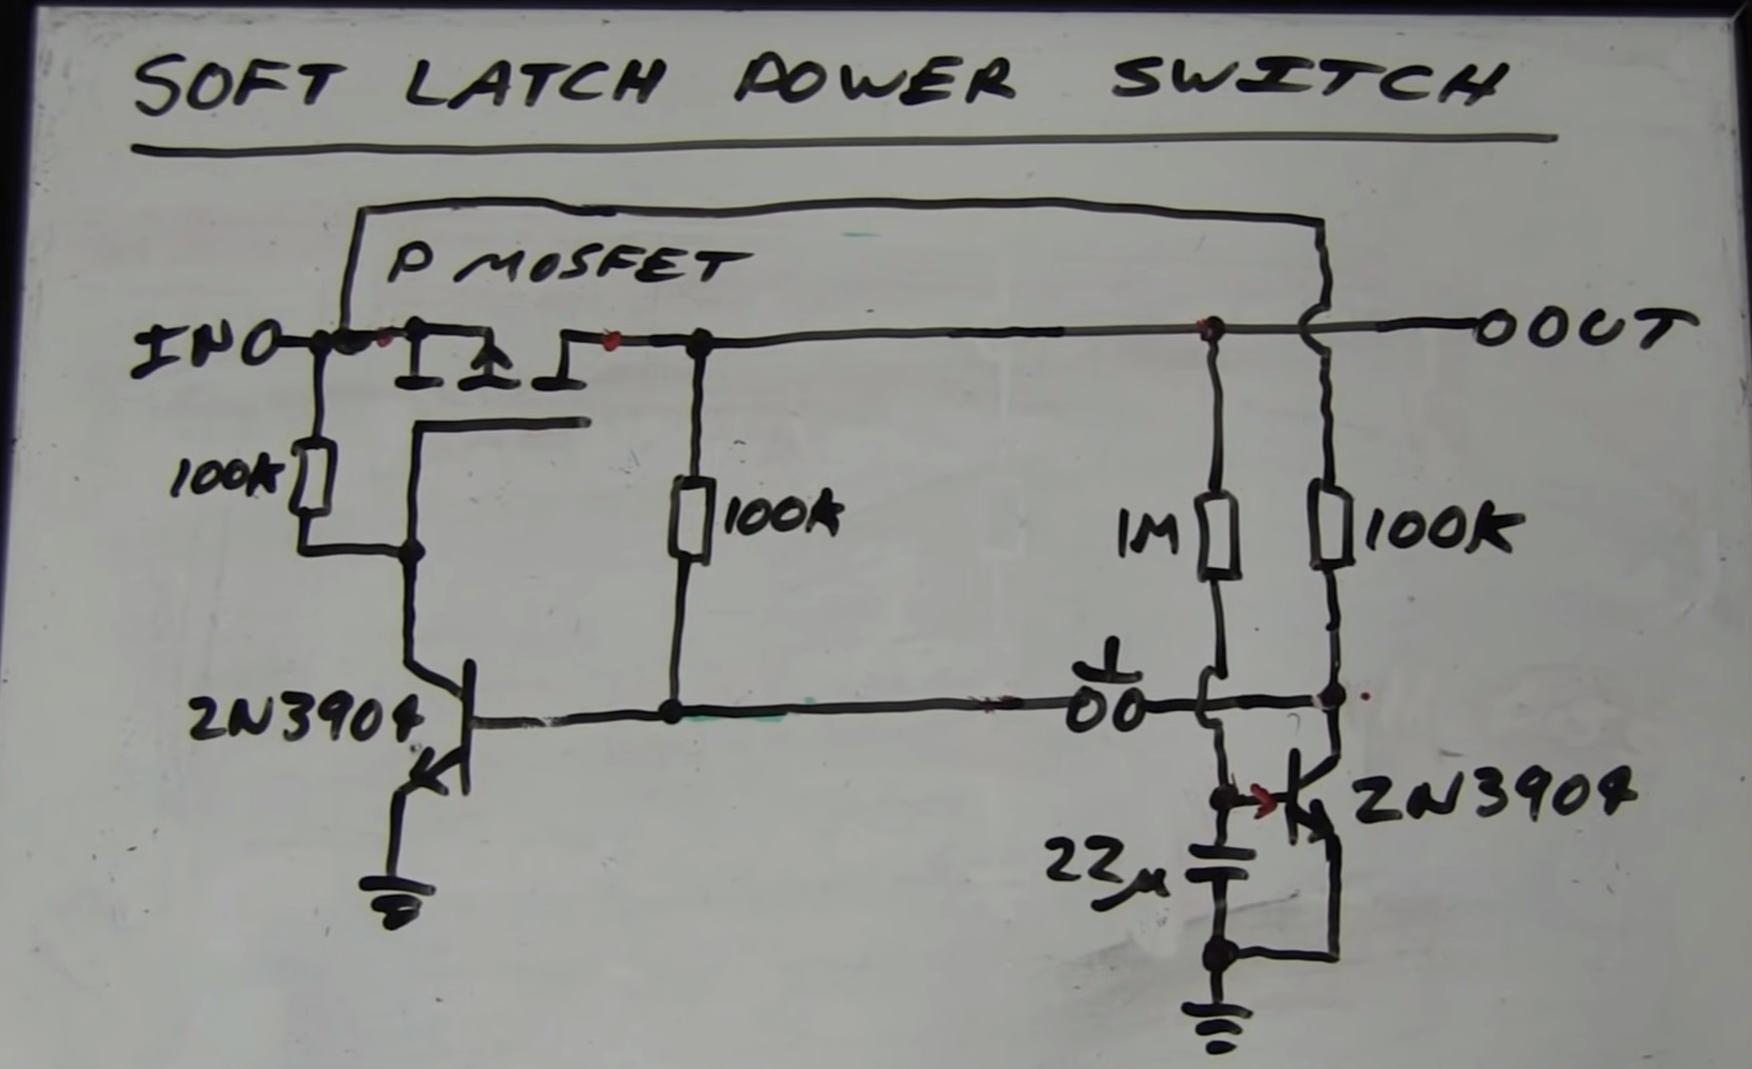 SOFT LATCH POWER SWITCH
P MOSFET
IN
OUT
100K
100K
1M
100K
2N3904
2N3904
22µ